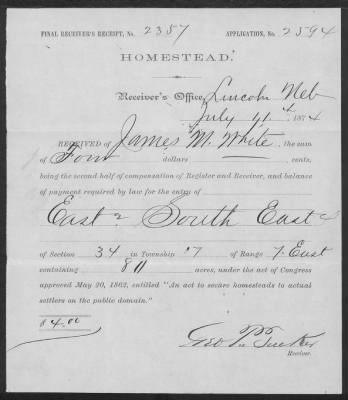 FINAL RECEIVER'S RECEIPT, No. 2357 APPLICATION, No. 2594
HOMESTEAD.
Receiver's Office, Lincoln Neb
July 11th 1874
RECEIVED of James M. White the sum
of Four dollars cents,
being the second half of compensation of Register and Receiver, and balance
of payment required by law for the entry of
East 2 South East 4
of Section 34 in Township 7 of Range 7 East
containing 80 acres, under the act of Congress
approved May 20, 1862, entitled "An act to secure homesteads to actual
settlers on the public domain."
$4.00
Geo P. Tucker
Receiver.